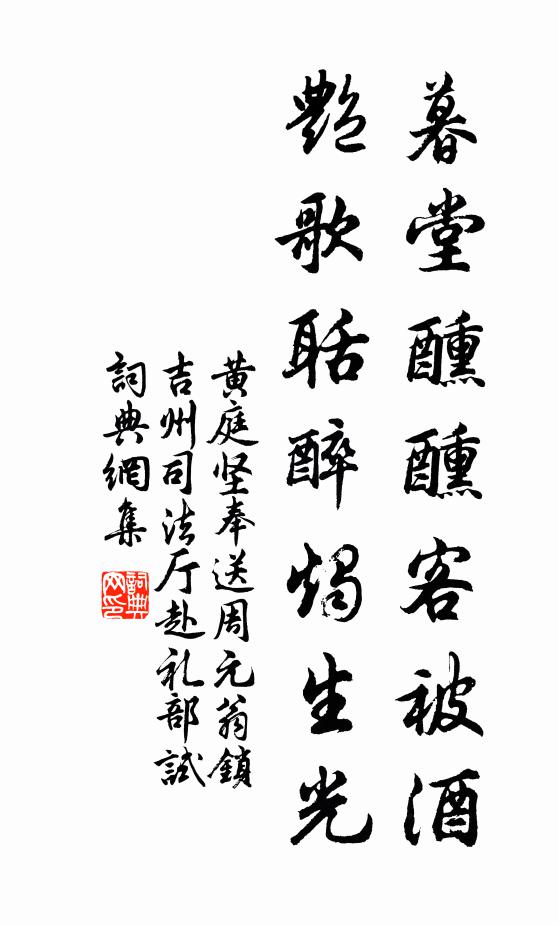 暮堂醺醺客被酒
艷歌聒醉燭生光
黄庭坚奉送周元翁鎖
吉州司法厅赴礼部試
詞典網集
詞典网印